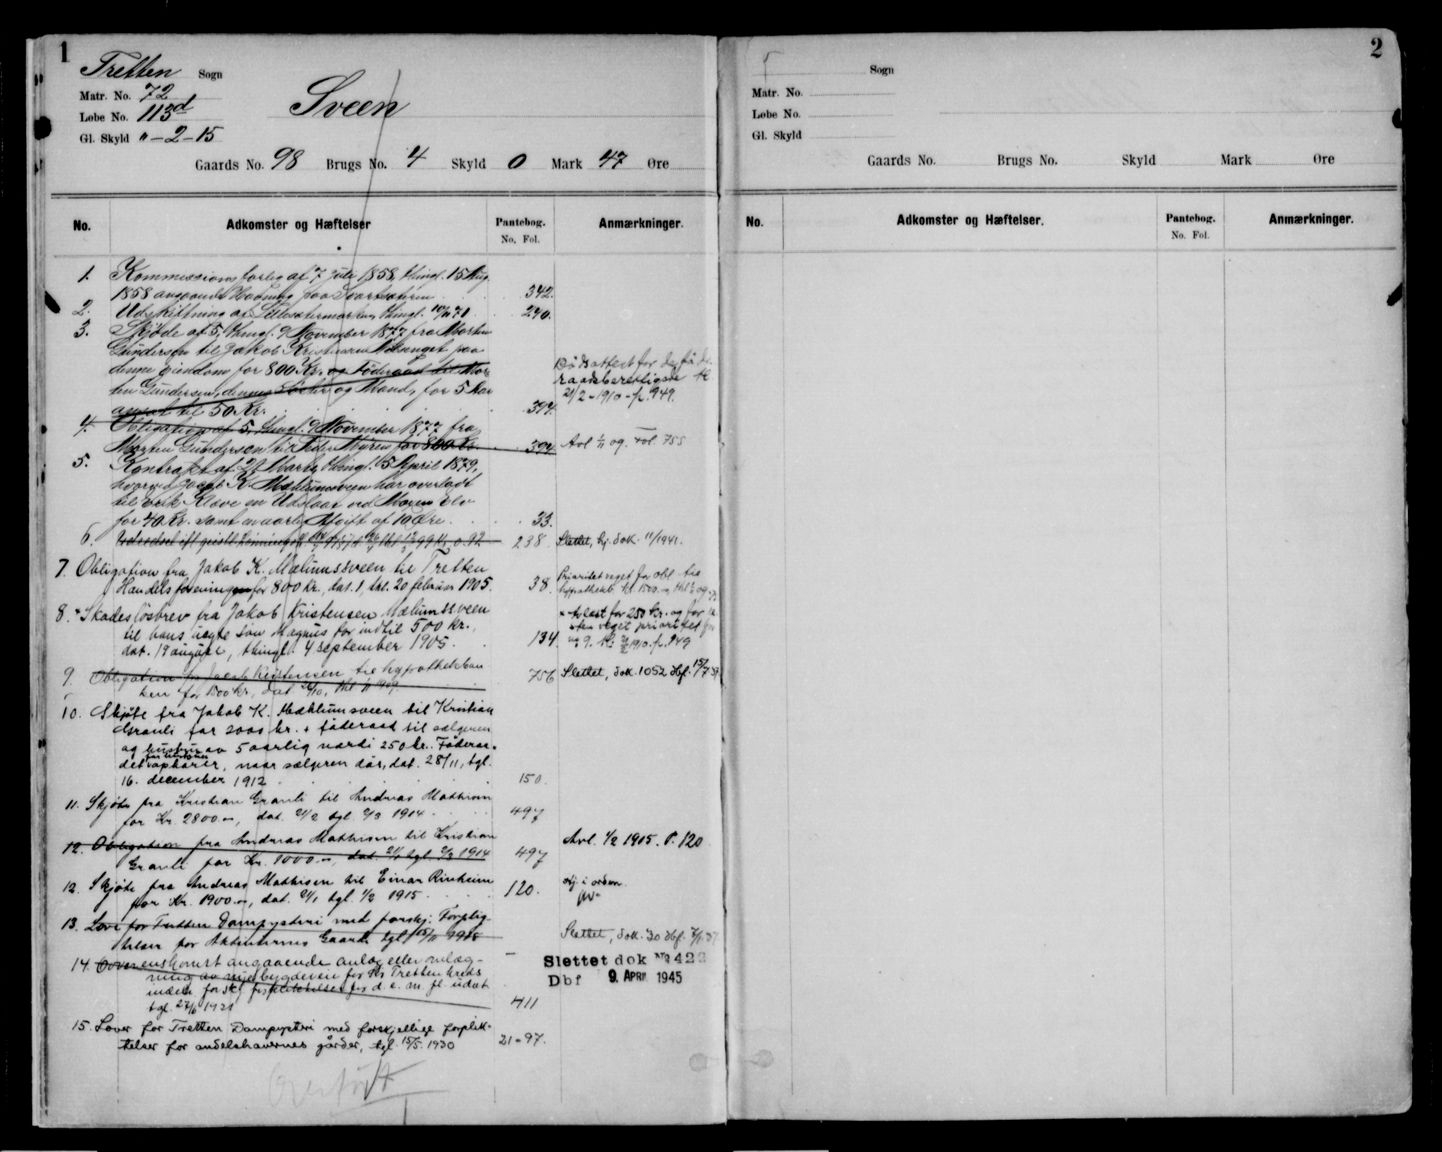 1
Tretten Sogn
Matr. No. 72
Løbe No. 113d
Gl. Skyld " - 2 - 15
Sveen
Gaards No. 98 Brugs No. 4 Skyld 0 Mark 47 Øre
No. Adkomster og Hæftelser Pantebog. No. Fol. Anmærkninger.
1. Kommissionsforlig af 7 Juli 1858, thingl. 15 Aug.
1858 angaaende Havning paa 342.
2. Udskiftning af thingl. 240.
3. Skjøde af 5, thingl. 9 November 1877 fra Morten
Gundersen til Jakob Kristensen paa
denne eiendom for 800 Kr. og Føderaad til Mor-
ten Gundersen, dennes og Mand, for 5 Aar
anført til 50 Kr. 394.
Dødsattest for de fø de-
raadsberettigede tl
21/2-1910-f. 949.
4. Obligation af 5, thingl. 9 November 1877 fra
Morten Gundersen til Peder Myren for 800 Kr. 394
Avl. og. Fol. 755
5. Kontrakt af 21 Marts, thingl. 15 April 1879,
hvorved Jacob K. Mælumssveen har overladt
til Erik Kleve en Udslaat ved Moxen Elv
for 40 Kr. samt en aarlig Afgift af 10 Øre. 33.
6. 238 Slettet, kj. dok. 11/1941.
7. Obligation fra Jakob K. Mælumssveen til Tretten
Handelsforening for 800 kr., dat. 1, tgl. 20 februar 1905. 38.
Prioritet veget for obl. til
hypothekb. kr. 1500.
8. Skadesløsbrev fra Jakob Kristensen Mælumssveen
til hans uegte søn Magnus for indtil 500 kr.,
dat. 19 august, thingl. 4 september 1905. 134
for 250 kr. og for
veget prioritet for
1910 - f. 949
9. Obligation fra Jacob Kristensen til hypothekban-
ken for 1500 kr., dat 756
Slettet, dok. 1052 dbf.
10. Skjøte fra Jakob K. Mæhlumssveen til Kristian
Granli for 2000 kr. + føderaad til sælgeren
og hustru av 5 aarlig værdi 250 kr. Føderaa-
det ophører, naar sælgeren dør, dat. 28/11, tgl.
16. december 1912 150.
11. Skjøte fra Kristian Granli til Andreas Mathisen
for Kr. 2800.00, dat. 21/2 tgl. 2/3 1914 497
12. Obligation fra Andreas Mathisen til Kristian
Granli for Kr. 1000.00, dat. tgl. 2/3 1914 497
Avl. 1/2 1915. P. 120
12. Skjøte fra Andreas Mathisen til Einar Rinheim
for Kr. 1900.00, dat. 21/1 tgl. 1/2 1915 120.
i orden
13. Love for Tretten Dampysteri med forskj. Forplig-
telser for Aktieternes Gaarde tgl.
Slettet, dok. 30 dbf.
14. Overenskomst angaaende anlæg eller omlæg-
ning av for Tretten kreds
d. e. m. fl. udst
tgl. 27/6 1921 411
Slettet dok No 422
Dbf 9. APRIL 1945
15. Lover for Tretten Dampysteri med forskjellige forplik-
telser for andelshavernes gårder, tgl. 15/5. 1930 21-97.
Overført
2
Sogn
Matr. No.
Løbe No.
Gl. Skyld
Gaards No. Brugs No. Skyld Mark Øre
No. Adkomster og Hæftelser. Pantebog. No. Fol. Anmærkninger.